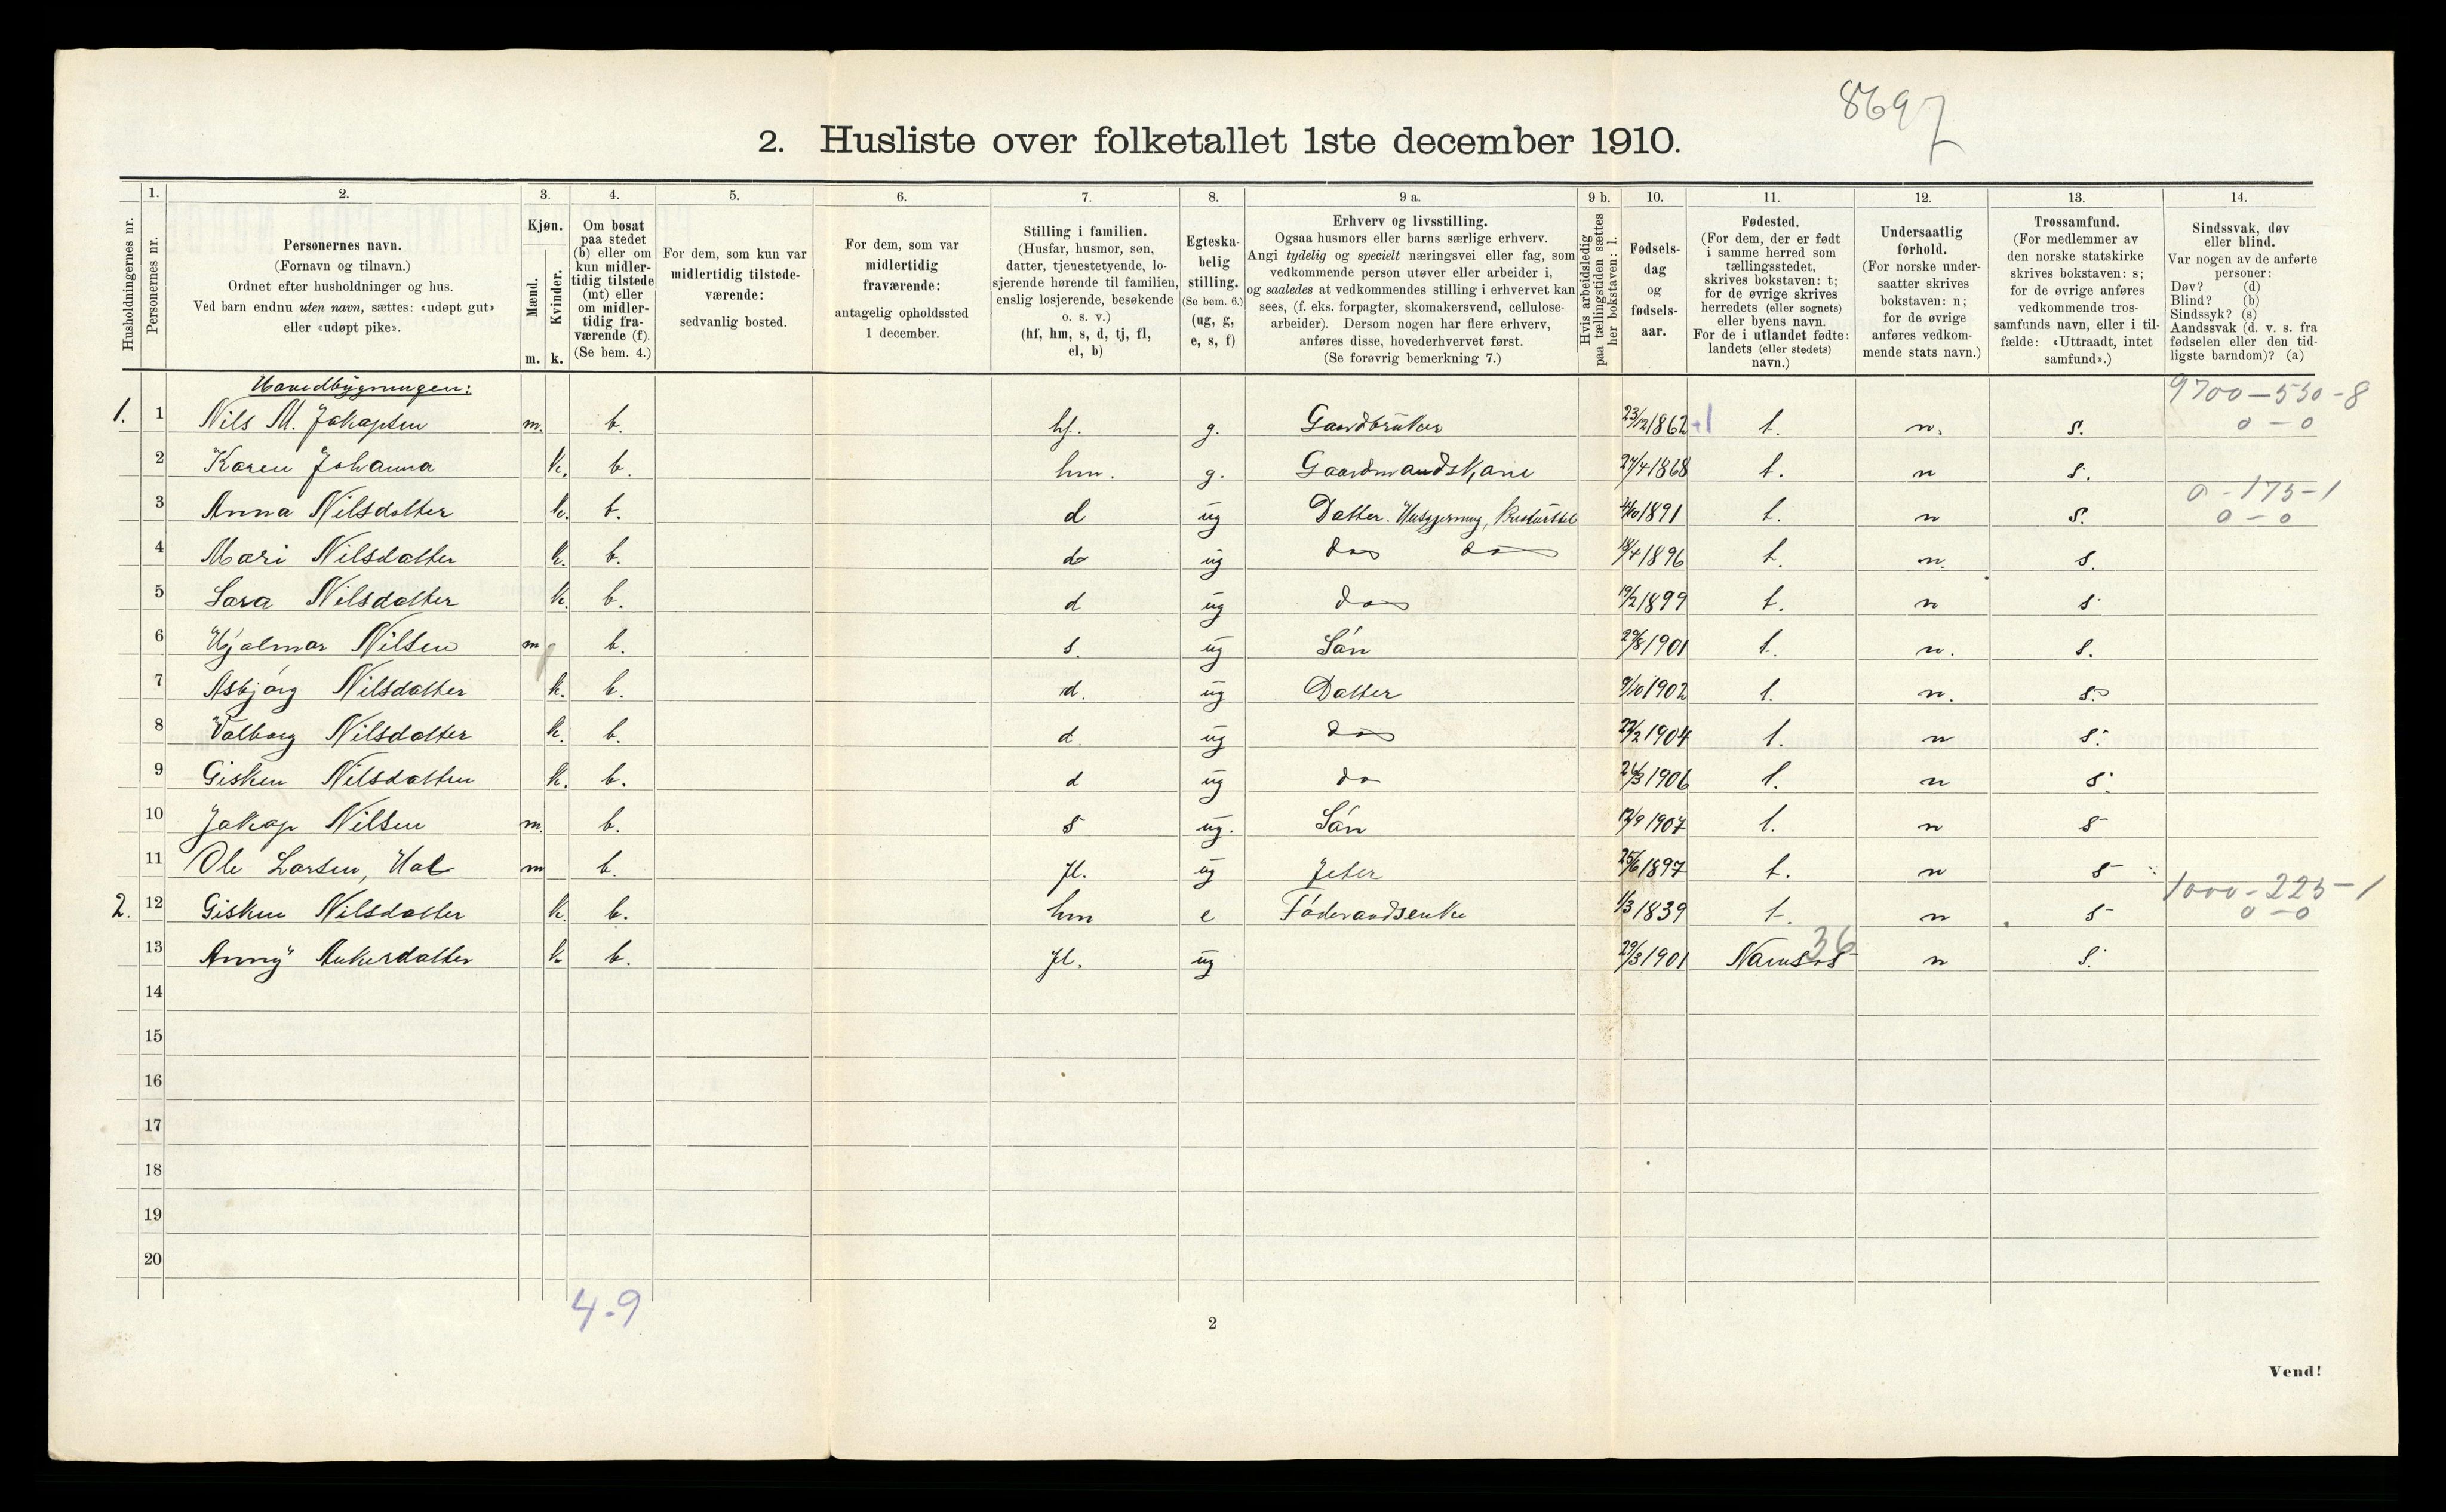 8697
2. Husliste over folketallet 1ste december 1910.
Husholdningernes nr.
1.
Personernes nr.
2.
Personernes navn.
(Fornavn og tilnavn.)
Ordnet efter husholdninger og hus.
Ved barn endnu uten navn, sættes: «udøpt gut»
eller «udøpt pike».
3.
Kjøn.
Mænd.
Kvinder.
m. k.
4.
Om bosat
paa stedet
(b) eller om
kun midler-
tidig tilstede
(mt) eller
om midler-
tidig fra-
værende (f).
(Se bem. 4.)
5.
For dem, som kun var
midlertidig tilstede-
værende:
sedvanlig bosted.
6.
For dem, som var
midlertidig
fraværende:
antagelig opholdssted
1 december.
7.
Stilling i familien.
(Husfar, husmor, søn,
datter, tjenestetyende, lo-
sjerende hørende til familien,
enslig losjerende, besøkende
o. s. v.)
(hf, hm, s, d, tj, fl,
el, b)
8.
Egteska-
belig
stilling.
(Se bem. 6.)
(ug, g,
e, s, f)
9 a.
Erhverv og livsstilling.
Ogsaa husmors eller barns særlige erhverv.
Angi tydelig og specielt næringsvei eller fag, som
vedkommende person utøver eller arbeider i,
og saaledes at vedkommendes stilling i erhvervet kan
sees, (f. eks. forpagter, skomakersvend, cellulose-
arbeider). Dersom nogen har flere erhverv,
anføres disse, hovederhvervet først.
(Se forøvrig bemerkning 7.)
9 b.
Hvis arbeidsledig
paa tællingstiden sættes
her bokstaven: l.
10.
Fødsels-
dag
og
fødsels-
aar.
11.
Fødested.
(For dem, der er født
i samme herred som
tællingsstedet,
skrives bokstaven: t;
for de øvrige skrives
herredets (eller sognets)
eller byens navn.
For de i utlandet fødte:
landets (eller stedets)
navn.)
12.
Undersaatlig
forhold.
(For norske under-
saatter skrives
bokstaven: n;
for de øvrige
anføres vedkom-
mende stats navn.)
13.
Trossamfund.
(For medlemmer av
den norske statskirke
skrives bokstaven: s;
for de øvrige anføres
vedkommende tros-
samfunds navn, eller i til-
fælde: «Uttraadt, intet
samfund».)
14.
Sindssvak, døv
eller blind.
Var nogen av de anførte
personer:
Døv? (d)
Blind? (b)
Sindssyk? (s)
Aandssvak (d. v. s. fra
fødselen eller den tid-
ligste barndom)? (a)
Hovedbygningen:
9700-550-8
1. 1 Nils M. Jakapsen m. b. hf. g. Gaardbruker 23/12 1862 +1 t. n. s. 0-0
2 Karen Johanna k. b. hm. g. Gaardmandskone 27/4 1868 t. n s.
0-175-1
3 Anna Nilsdatter k. b. d ug Datter. Husgjerning, 1891 t. n s. 0-0
4 Mari Nilsdatter k. b. d ug do do 18/4 1896 t. n. s.
5 Sara Nilsdatter k. b. d ug do 19/2 1899 t. n s
6 Hjalmar Nilsen m b. s. ug Sön 29/8 1901 t. n. s.
7 Asbjörg Nilsdatter k. b. d. ug Datter 9/10 1902 t. n. s.
8 Valborg Nilsdatter k. b. d. ug do 22/2 1904 t. n s.
9 Gisken Nilsdatter k. b. d ug do 26/3 1906 t. n s.
10 Jakap Nilsen m. b. s ug. Sön 12/9 1907 t. n s
11 Ole Larsen, Hal m b. fl. ug Jeter 25/6 1897 t. n s
1000-225-1
2. 12 Gisken Nilsdatter k. b. hm e Föderaadsenke 1/3 1839 t. n s 0-0
36
13 Anny Ankerdatter k. b. fl. ug 29/3 1901 Namsos n s.
14
15
16
17
18
19
20
4-9
2
Vend!